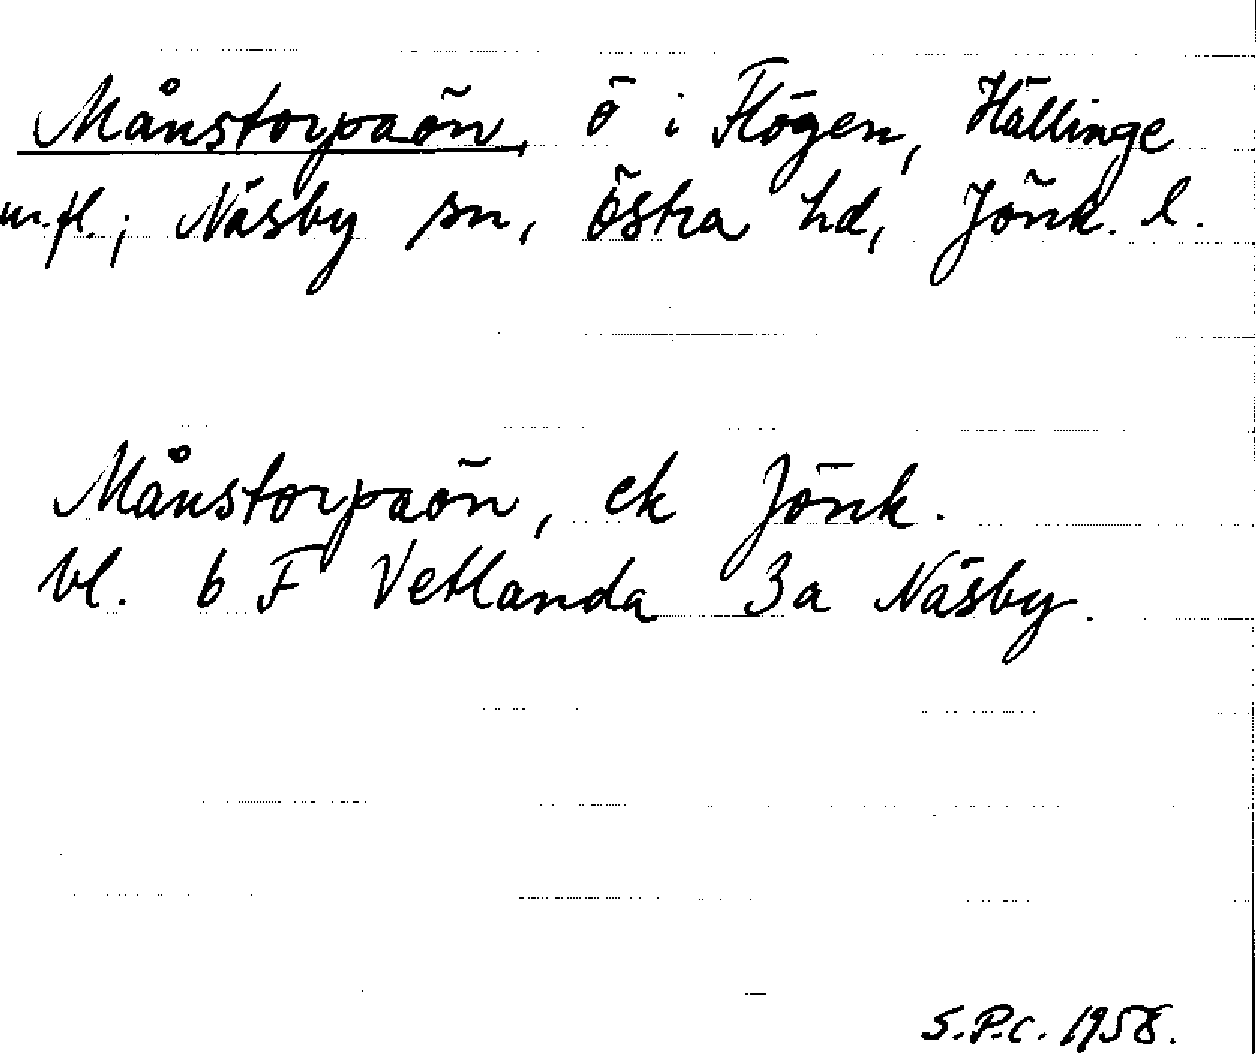 Månstorpaön, ö i Flögen, Hällinge
m.fl.; Näsby sn, Östra hd, Jönk. l.
Månstorpaön, ek Jönk.
bl. 6 F Vetlanda 3a Näsby.
S.P.C. 1958.